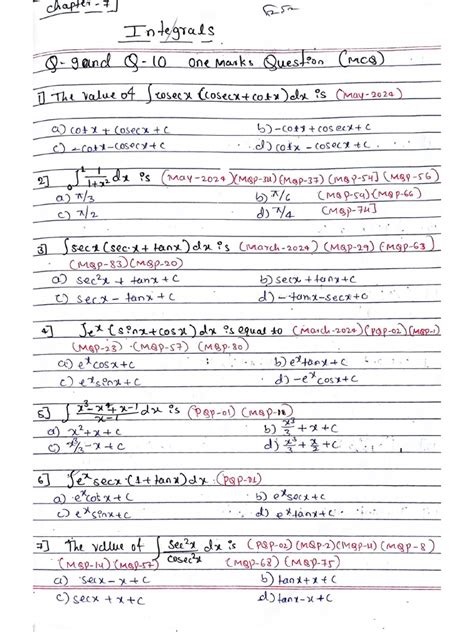 Chapter - 7]
Integrals
Q-9 and Q-10 one marks Question (MCQ)
1] The value of ∫cosecx (cosecx+cotx)dx is (May-2024)
a) cotx + cosecx + c b) -cotx + cosecx + c
c) -cotx - cosecx + c d) cotx - cosecx + c
2] ₀∫¹ 1/1+x² dx is (May-2024)(MQP-36)(MQP-37)(MQP-54)(MQP-56)
a) π/3 b) π/6 (MQP-59)(MQP-66)
c) π/2 d) π/4 (MQP-74]
3] ∫secx(secx + tanx)dx is (March-2024)(MQP-29)(MQP-63)
(MQP-83)(MQP-20)
a) sec²x + tanx + c b) secx + tanx + c
c) secx - tanx + c d) -tanx - secx + c
4] ∫eˣ (sinx + cosx)dx is equal to (March-2024)(PQP-02)(MQP-1)
(MQP-23) (MQP-57) (MQP-80)
a) eˣcosx + c b) eˣtanx + c
c) eˣsinx + c d) -eˣcosx + c
5] ∫ x³-x²+x-1/x-1 dx is (PQP-01)
a) x² + x + c b) x³/3 + x + c
c) x³/3 - x + c d) x³/3 + x/2 + c
6] ∫eˣ secx (1+tanx)dx (PQP-01)
a) eˣcotx + c b) eˣsecx + c
c) eˣsinx + c d) eˣtanx + c
7] The value of ∫ sec²x/cosec²x dx is (PQP-02)(MQP-2)(MQP-11)(MQP-8)
(MQP-14)(MQP-57) (MQP-68)(MQP-75)
a) secx - x + c b) tanx + x + c
c) secx + x + c d) tanx - x + c